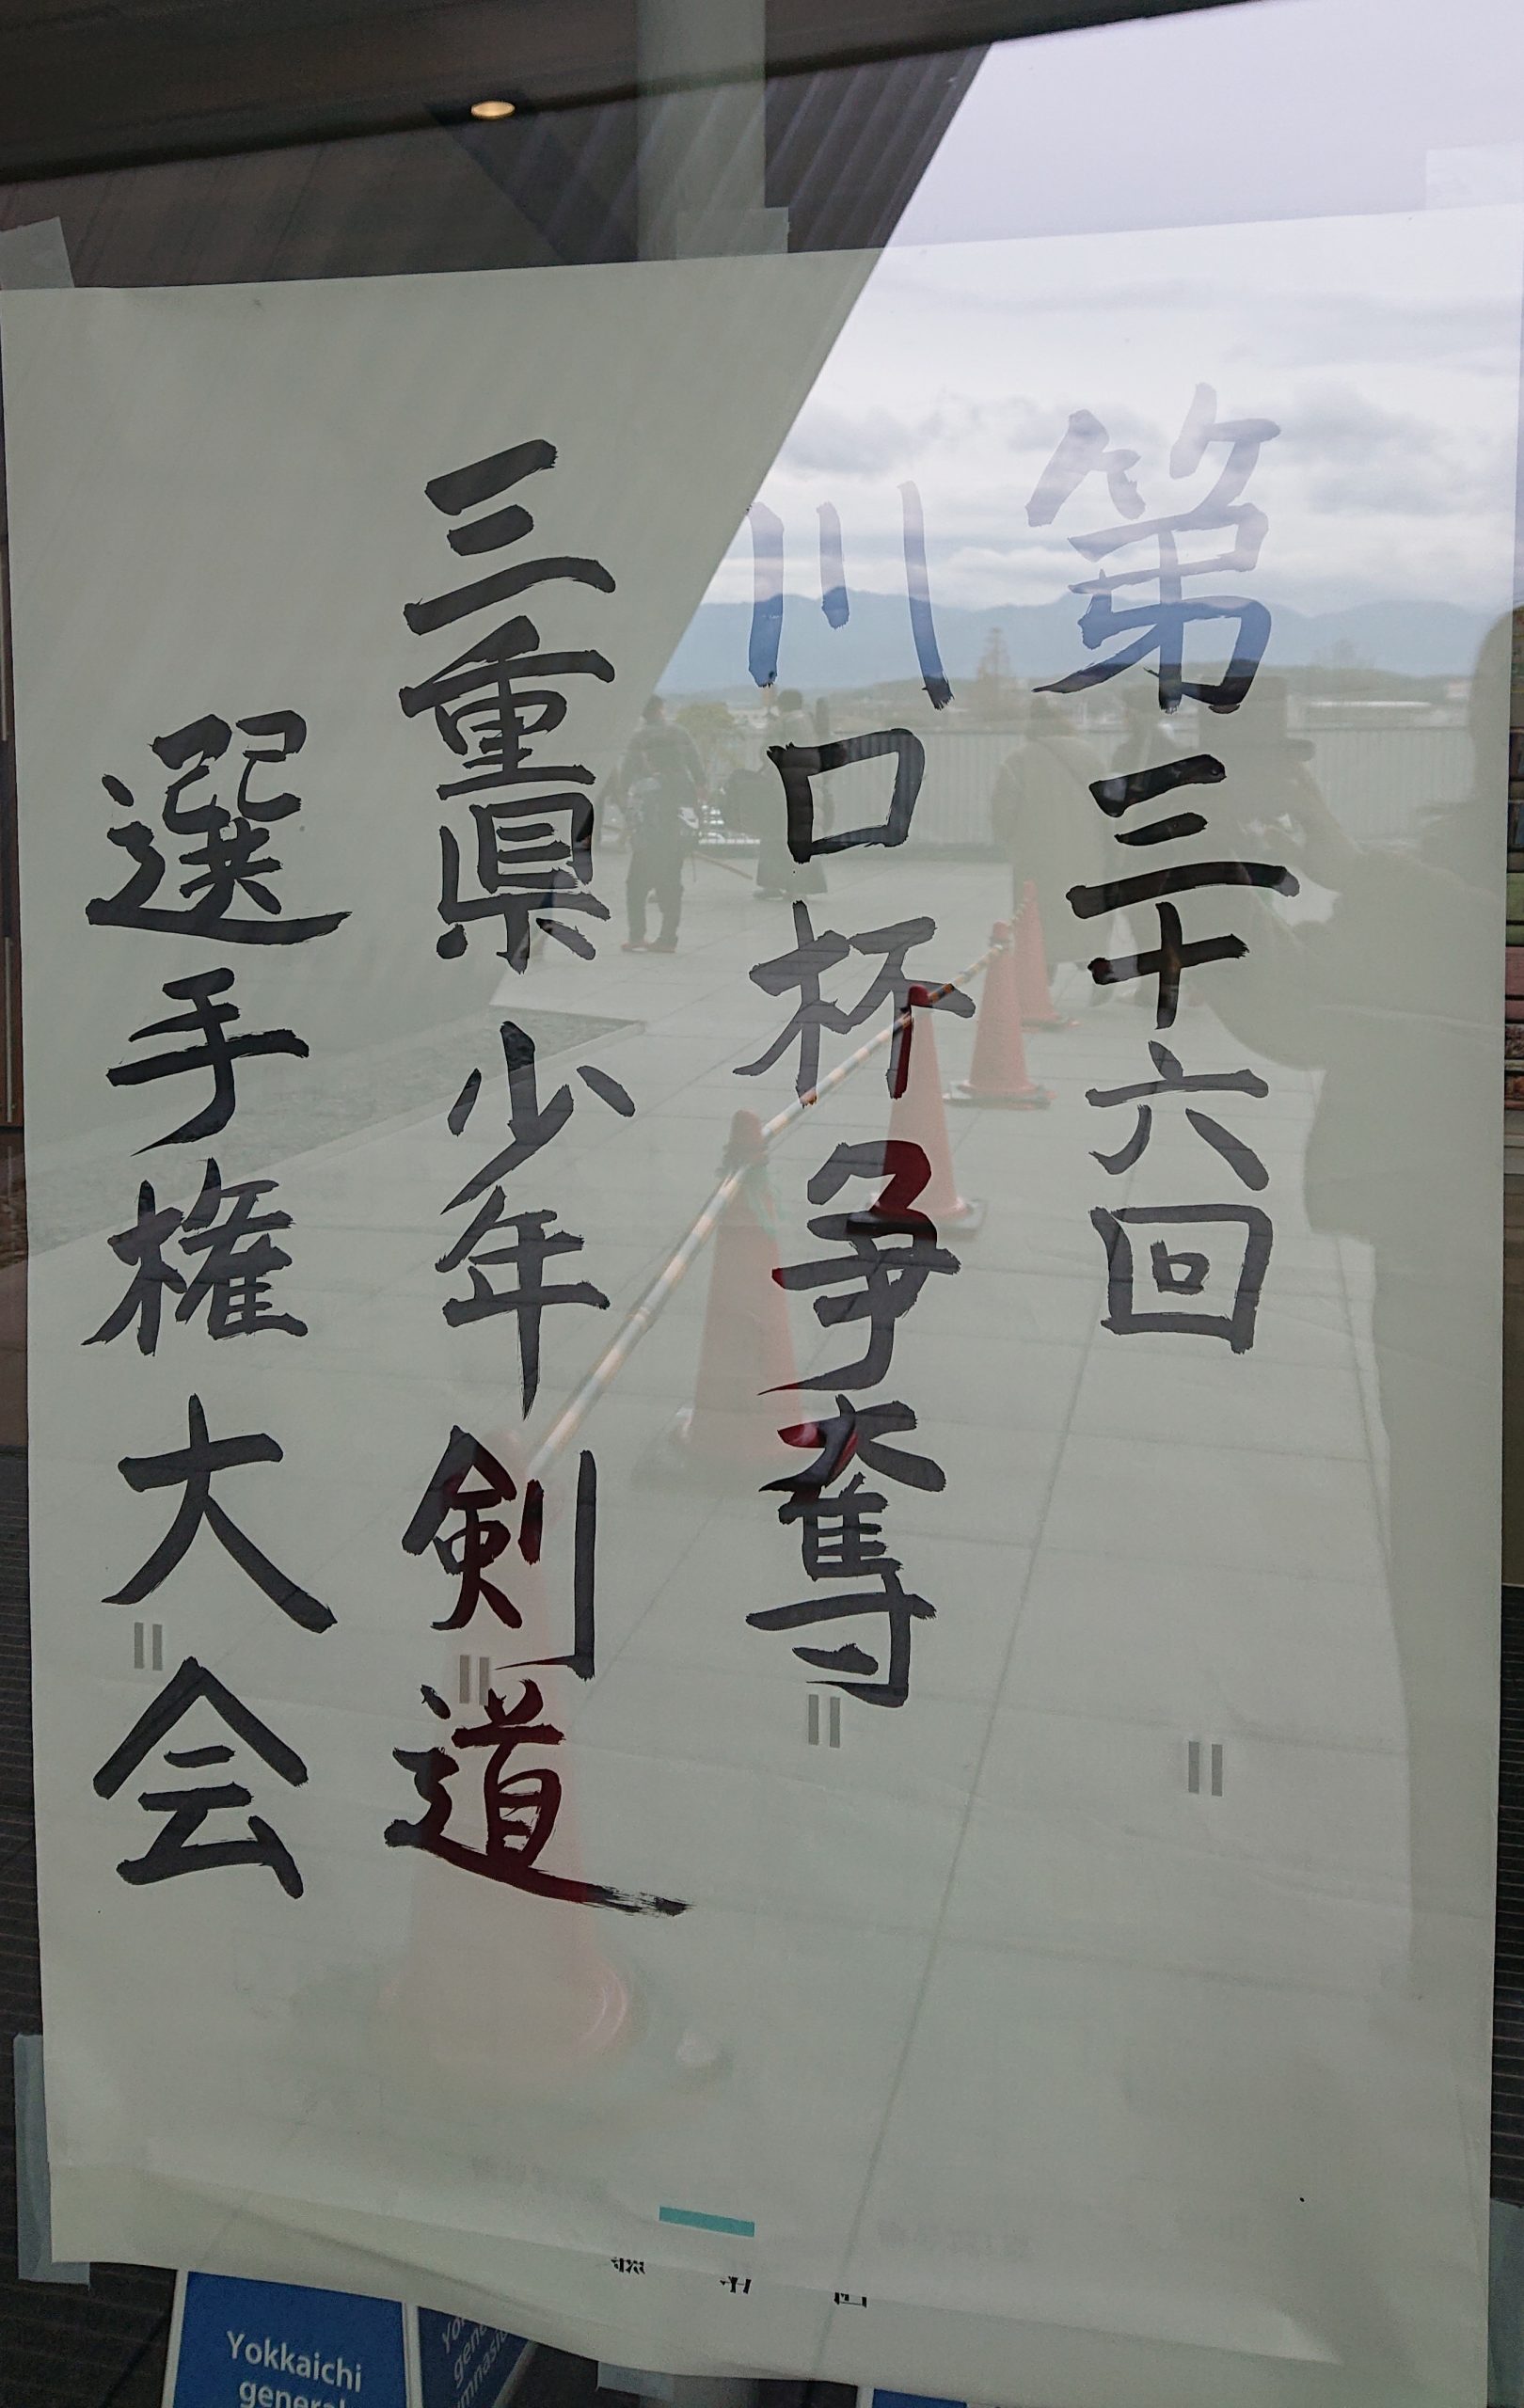 第三十六回
川口杯争奪
三重県少年剣道
選手権大会
Yokkaichi
general